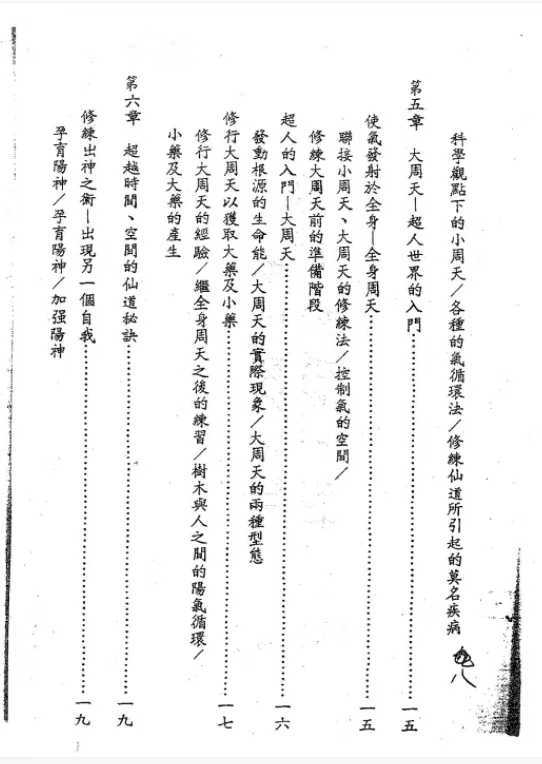 科學觀點下的小周天／各種的氣循環法／修練仙道所引起的莫名疾病
第五章　大周天—超人世界的入門……一五
使氣發射於全身—全身周天……一五
聯接小周天、大周天的修練法／控制氣的空間／
修練大周天前的準備階段
超人的入門—大周天……一六
發動根源的生命能／大周天的實際現象／大周天的兩種型態
修行大周天以獲取大藥及小藥……一七
修行大周天的經驗／繼全身周天之後的練習／樹木與人之間的陽氣循環／
小藥及大藥的產生
第六章　超越時間、空間的仙道秘訣……一九
修練出神之術—出現另一個自我……一九
孕育陽神／孕育陽神／加强陽神